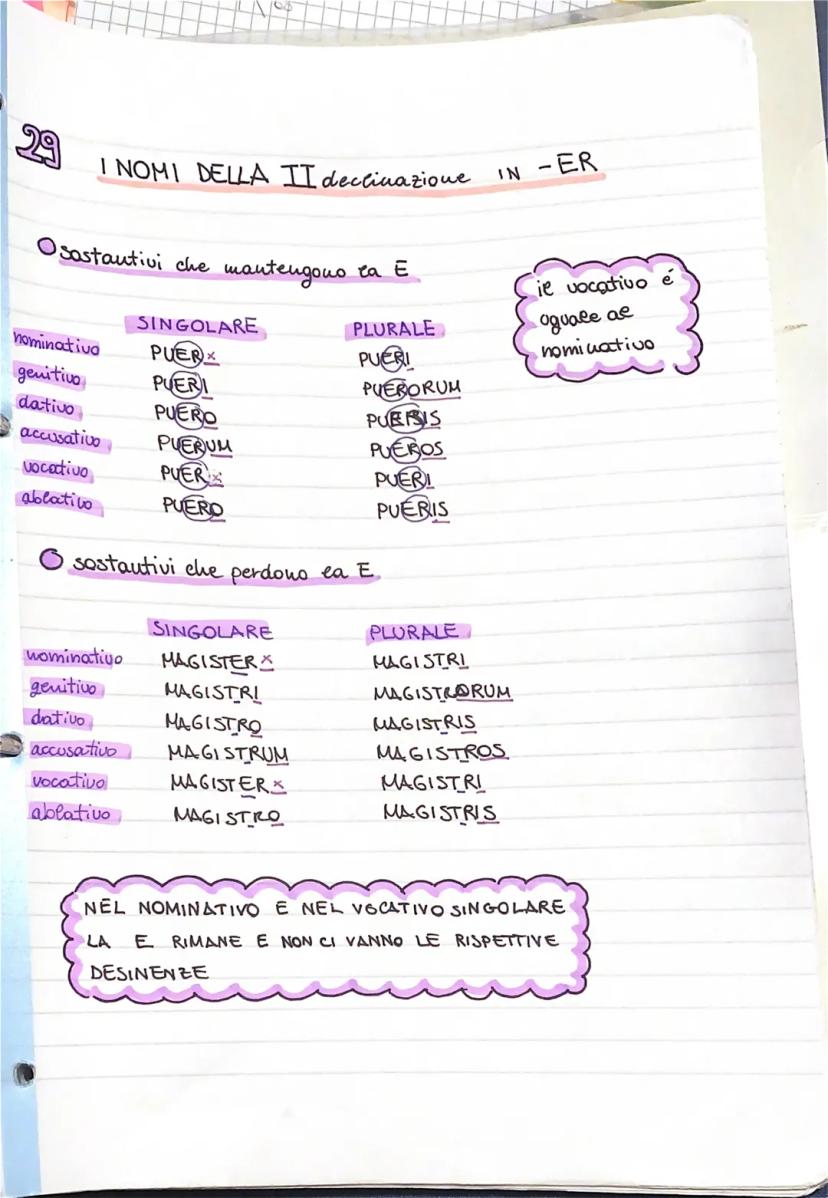 29
I NOMI DELLA II declinazione IN -ER
sostantivi che mantengono la E
il vocativo é
uguale al
nominativo
SINGOLARE PLURALE
nominativo PUER× PUERI
genitivo PUERI PUERORUM
dativo PUERO PUERIS
accusativo PUERUM PUEROS
vocativo PUER× PUERI
ablativo PUERO PUERIS
sostantivi che perdono la E
SINGOLARE PLURALE
nominativo MAGISTER× MAGISTRI
genitivo MAGISTRI MAGISTRORUM
dativo MAGISTRO MAGISTRIS
accusativo MAGISTRUM MAGISTROS
vocativo MAGISTER× MAGISTRI
ablativo MAGISTRO MAGISTRIS
NEL NOMINATIVO E NEL VOCATIVO SINGOLARE
LA E RIMANE E NON CI VANNO LE RISPETTIVE
DESINENZE